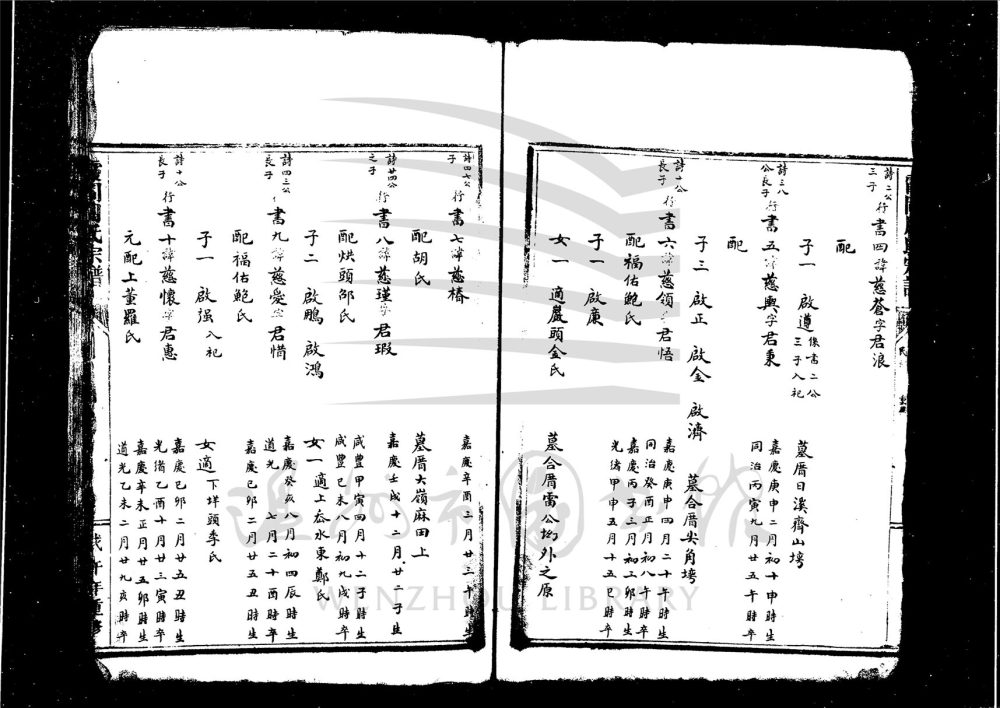 詩二公三子
行書四諱慈蒼字君浪
配
子一 啟遵 係書二公三子入祀
墓厝日溪齊山塆
詩三八公長子
行書五諱慈輿字君東
嘉慶庚申二月初十申時生
同治丙寅九月廿五午時卒
配
子三 啟正 啟金 啟濟
墓合厝尖角塆
詩十公長子
行書六諱慈領字君悟
嘉慶庚申四月二十午時生
同治癸酉正月初八午時卒
配福佑鮑氏
嘉慶丙子三月初三卯時生
光緒甲申五月十五巳時卒
子一 啟康
女一 適嚴頭金氏
墓合厝雷公坳外之原
詩四七公子
行書七諱慈椿
嘉慶辛酉三月廿三午時生
配胡氏
墓厝大嶺麻田上
詩廿四公之子
行書八諱慈瑾字君瑕
嘉慶壬戌十二月廿二子時生
咸豐甲寅四月十二子時卒
配烘頭邵氏
咸豐己未八月初九戌時卒
子二 啟鵬 啟鴻
女一 適上岙水東鄭氏
詩四三公長子
行書九諱慈愛字君惜
嘉慶癸亥八月初四辰時生
道光 七月二十酉時卒
配福佑鮑氏
嘉慶己卯二月廿五丑時生
子一 啟强入祀
女適下垟頭李氏
詩十公長子
行書十諱慈懷字君惠
嘉慶己卯二月廿五丑時生
光緒乙酉十月廿三寅時卒
元配上董羅氏
嘉慶辛未正月廿五卯時生
道光乙未二月廿九亥時卒
氏宗譜
年重修
WENZHOU LIBRARY